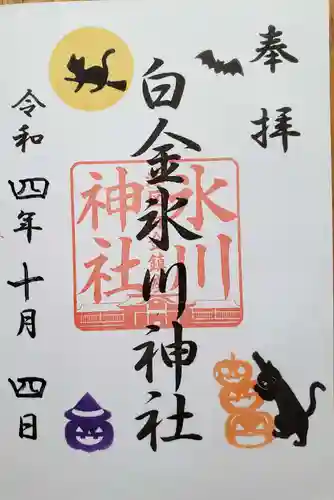 奉拝
白金氷川神社
氷川神社
令和四年十月四日